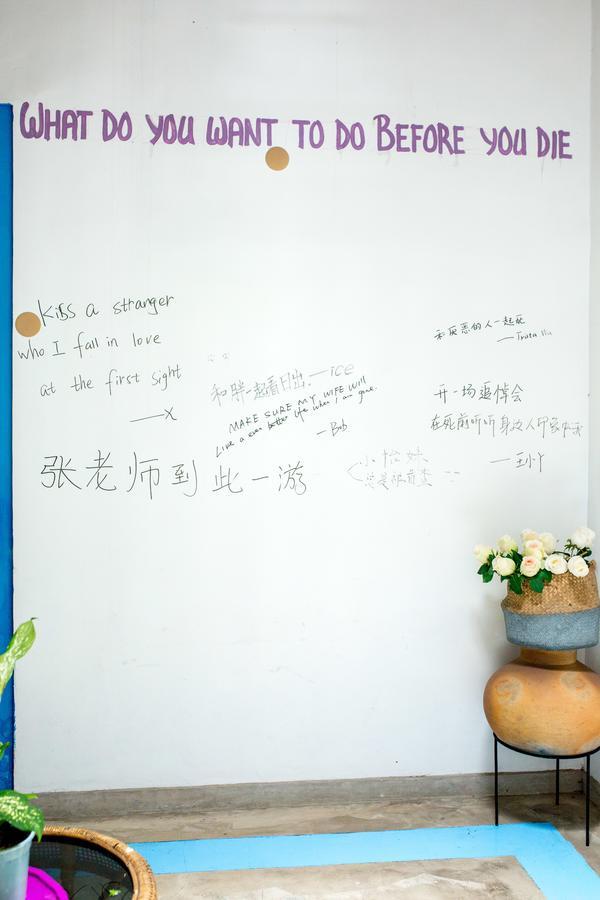 WHAT DO YOU WANT TO DO BEFORE YOU DIE
Kiss a stranger
who I fall in love
at the first sight
——X
和胖一起看日出.——ice
MAKE SURE MY WIFE WILL
Live a even better life when I am gone.
—Bob
张老师到此一游
和厌恶的人一起死
开一场追悼会
在死前听听身边人